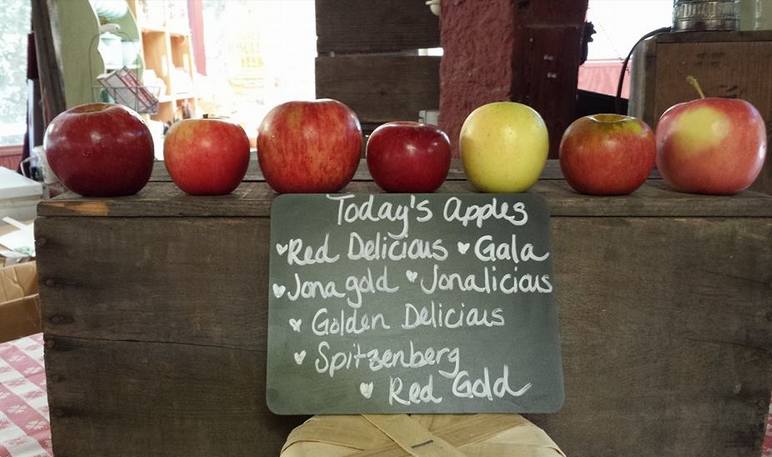 Today's Apples
♥Red Delicious ♥Gala
♥Jonagold ♥Jonalicious
♥Golden Delicious
♥Spitzenberg
♥Red Gold